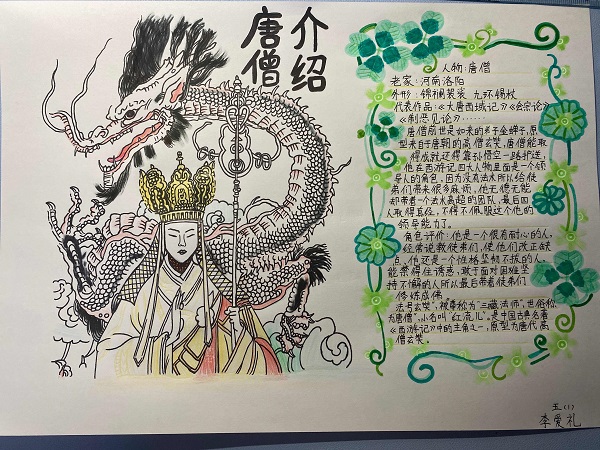 唐僧
介绍
人物:唐僧
老家:河南洛阳
外形:锦襕袈裟 九环锡杖
代表作品:《大唐西域记》《会宗论》
《制恶见论》……
唐僧前世是如来的弟子金蝉子,原
型来自于唐朝的高僧玄奘,唐僧能取
得成就还得靠孙悟空一路护送,
他在西游记四大人物里面是一个领
导人的角色,因为没有法术所以给徒
弟们带来很多麻烦,他无德无能
却带着一个法术高超的团队,最后四
人取得真经,不得不佩服这个他的
领导能力了。
角色评价:他是一个很有耐心的人,
经常说教徒弟们,使他们改正缺
点,他还是一个性格坚韧不拔的人,
能禁得住诱惑,敢于面对困难坚
持不懈的人所以最后带着徒弟们
修炼成佛
法号玄奘,被尊称为“三藏法师”,世俗称
为唐僧”,小名叫“江流儿”,是中国古典名著
《西游记》中的主角之一,原型为唐代高
僧玄奘。
五(1)
李爱礼